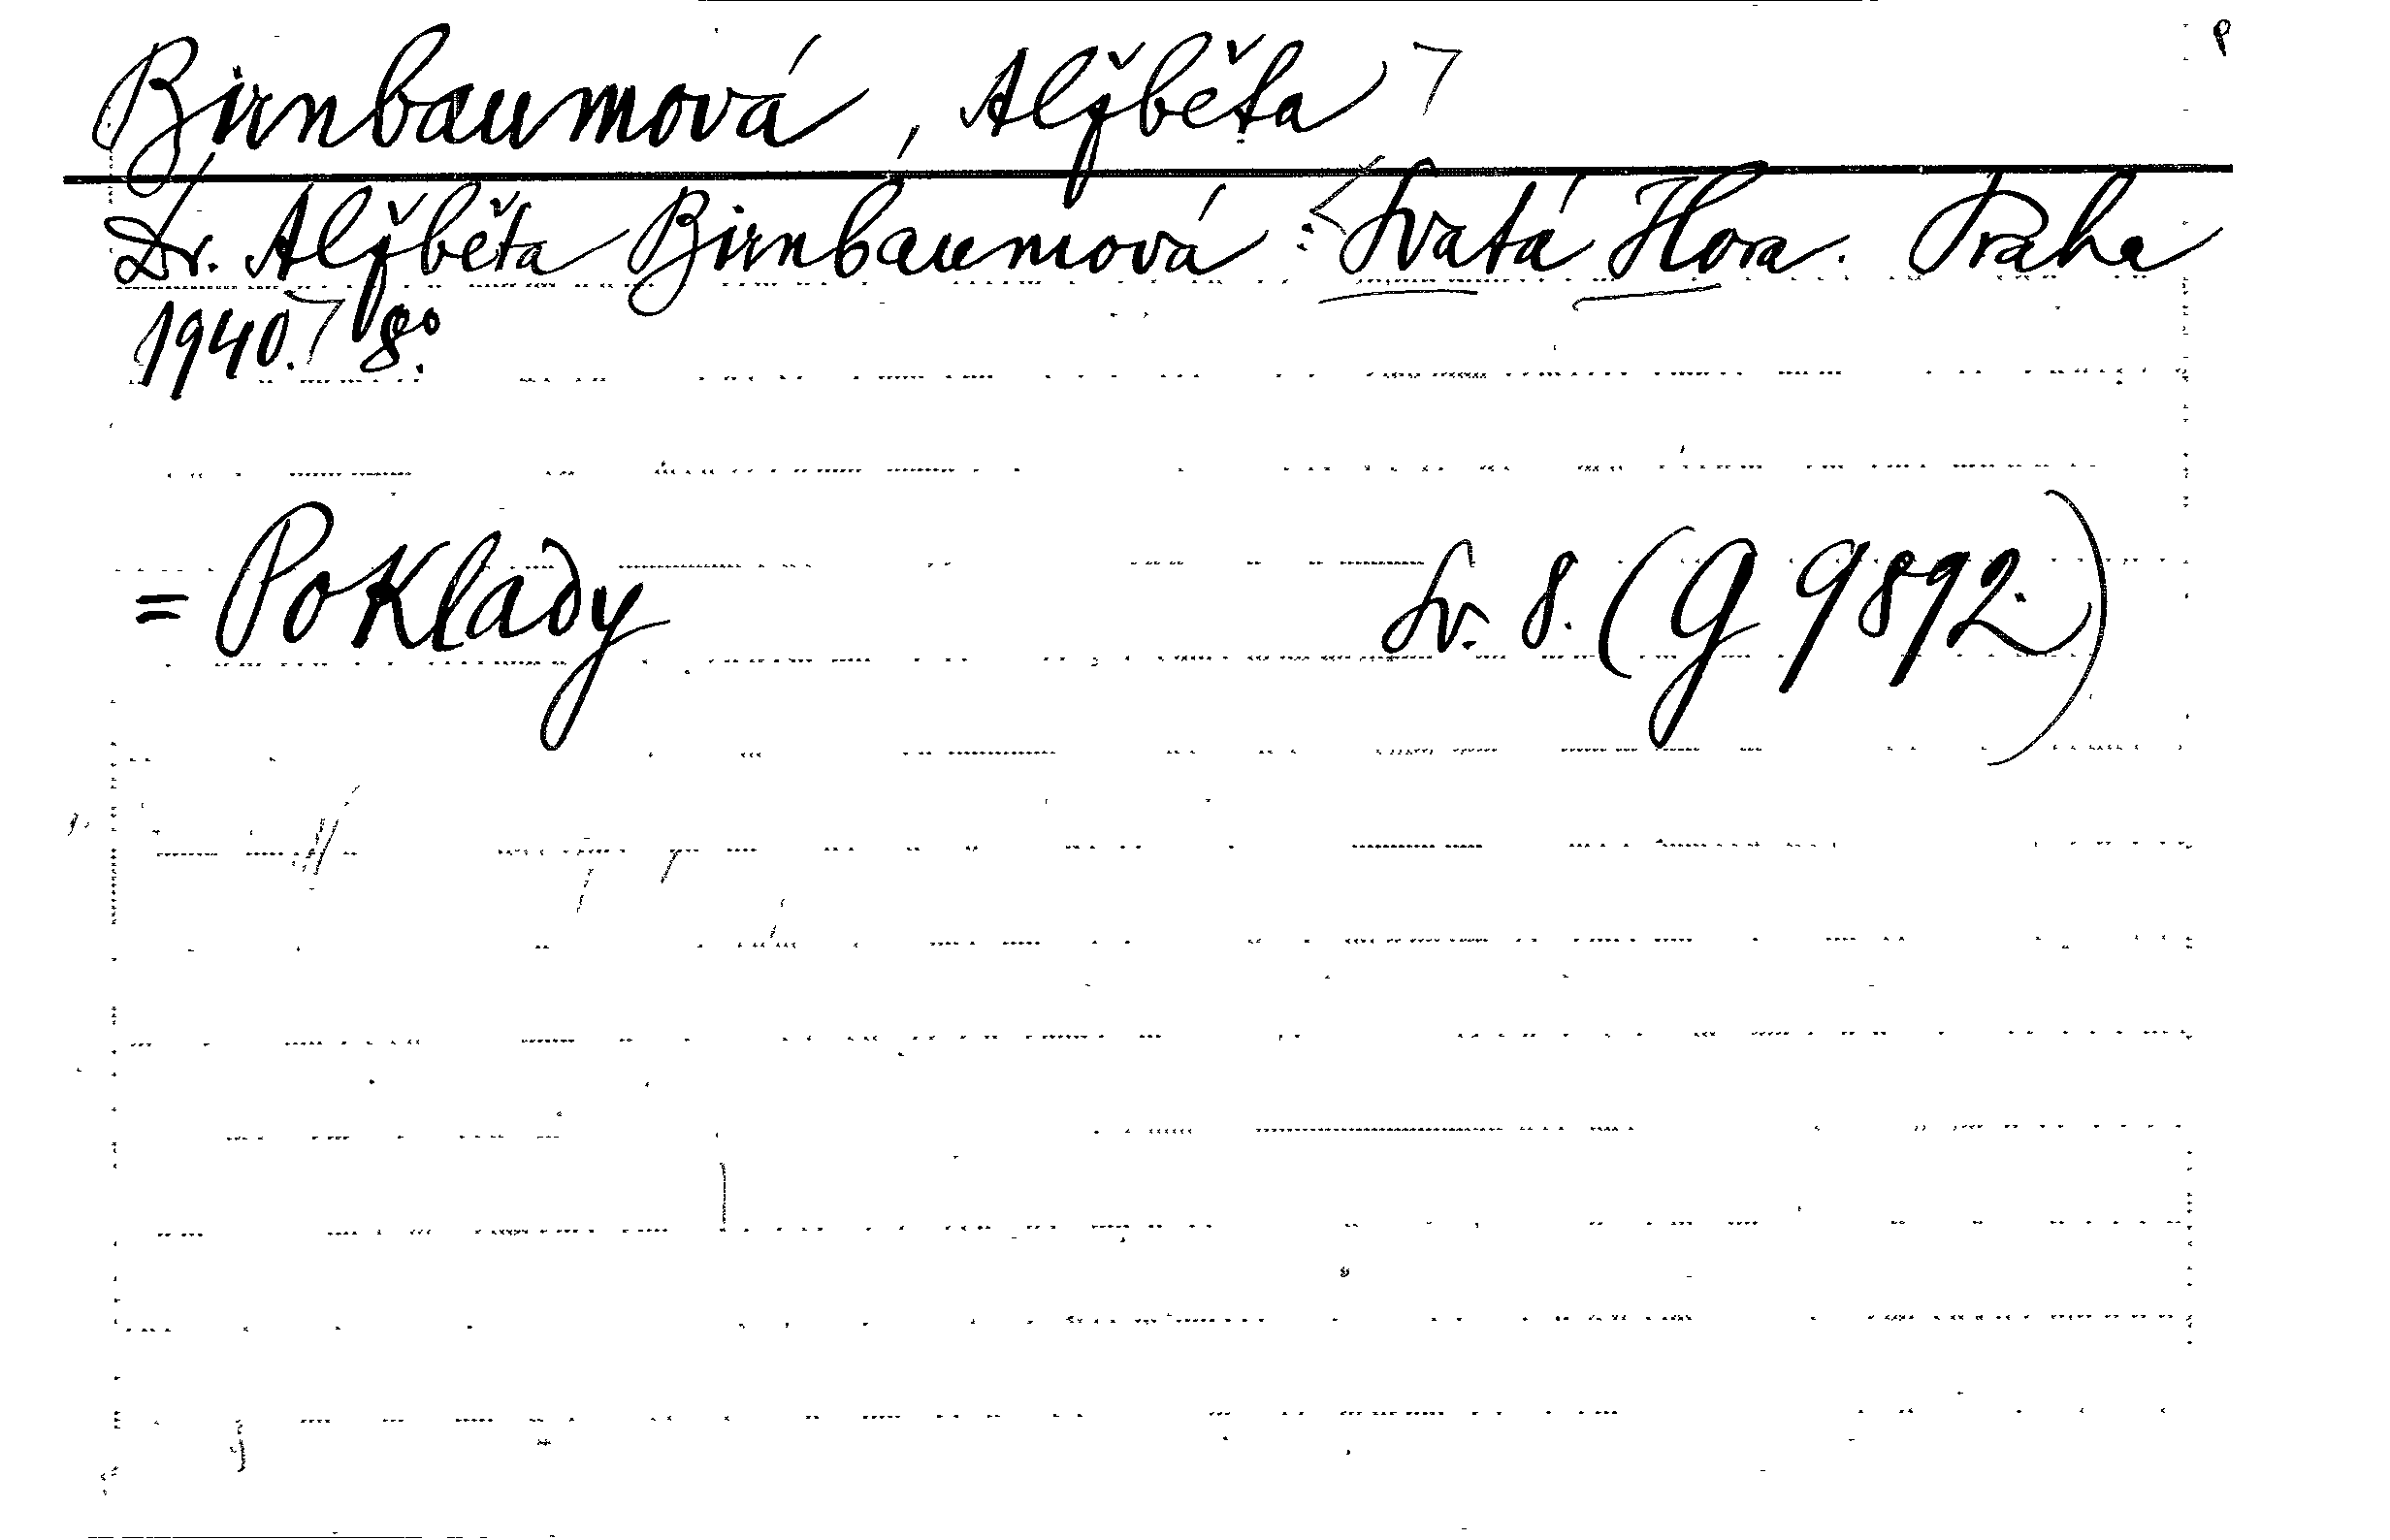 Birnbaumová, Alžběta
Dr. Alžběta Birnbaumová: Svatá Hora. Praha
1940. 8°.
= Poklady Sv. 8. (G 9892.)